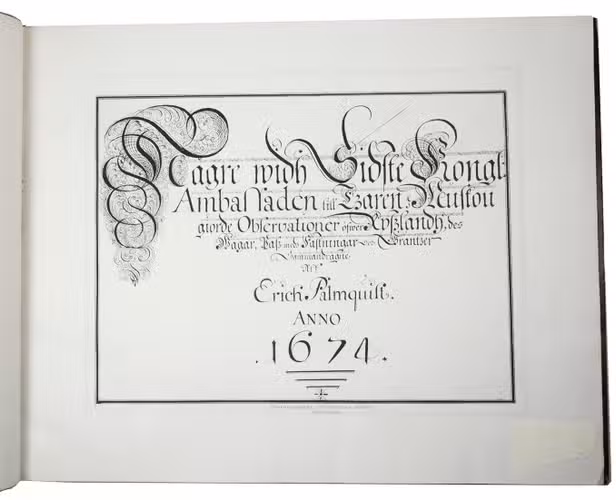 Någre widh Sidste Kongl:
Ambassaden till Tzaren i Muskou
giorde Observationer öfwer Ryßlandh, des
Wägar, Paß med Fästningar och Gräntzer
Sammandragne
Aff
Erich Palmquist.
ANNO
.1674.